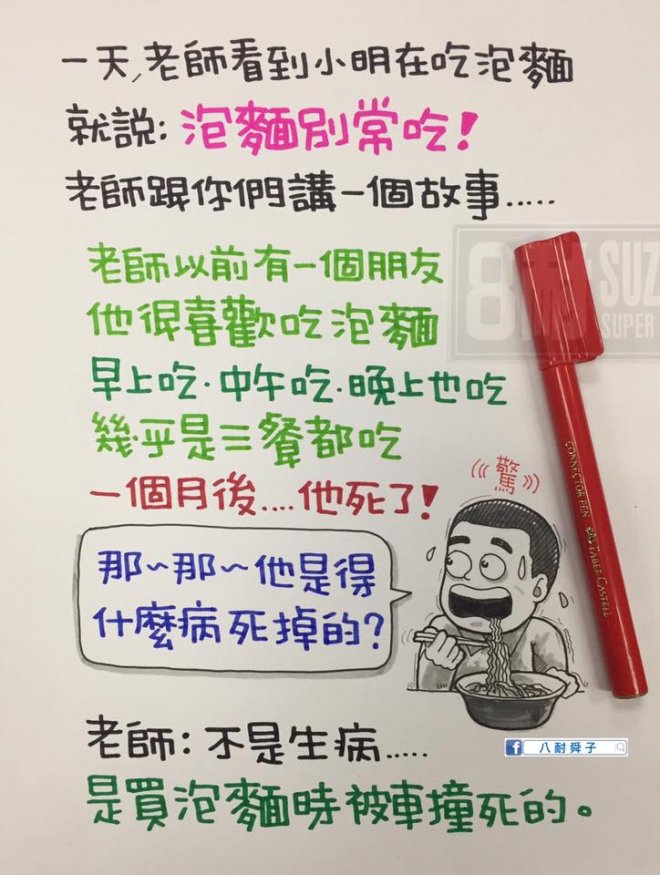 一天,老師看到小明在吃泡麵
就說:泡麵別常吃!
老師跟你們講一個故事.....
老師以前有一個朋友
他很喜歡吃泡麵
早上吃.中午吃.晚上也吃
幾乎是三餐都吃
一個月後....他死了!
驚
那~那~他是得
什麼病死掉的?
老師:不是生病.....
是買泡麵時被車撞死的。
8耐 SUZ
SUPER
CONNECTOR PEN FABER CASTELL
f 八耐舜子